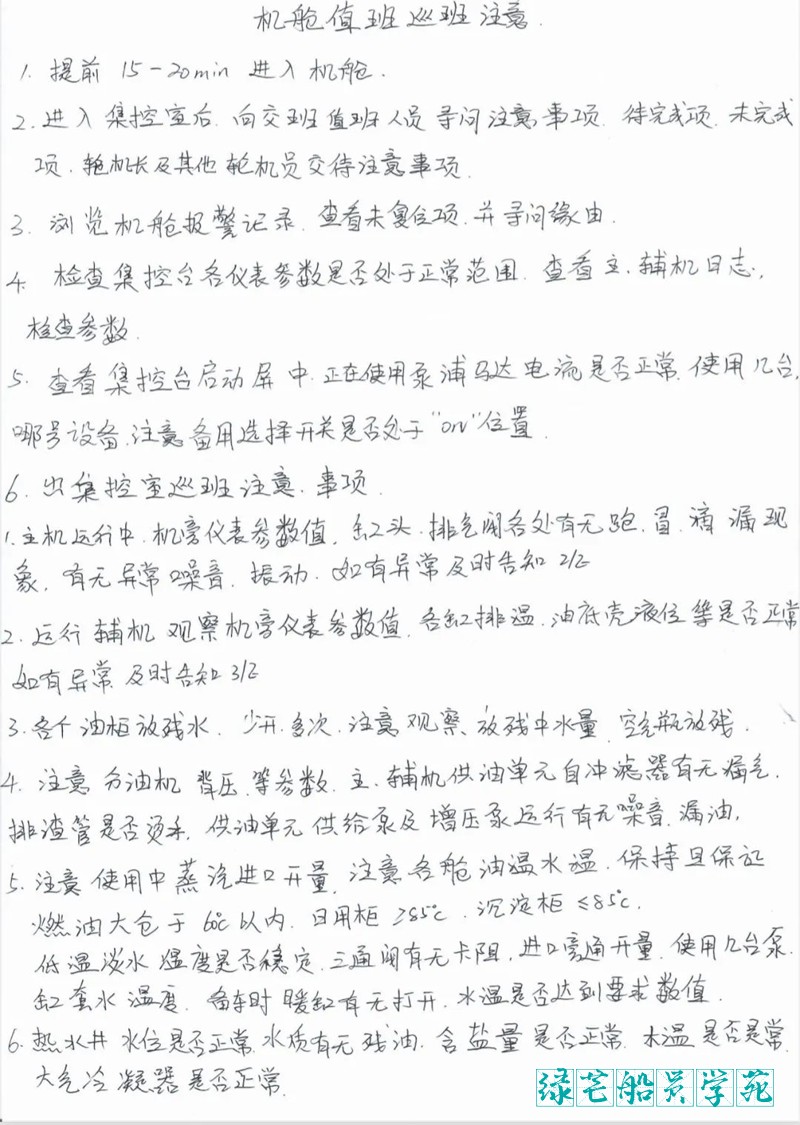 机舱值班巡班注意.
1. 提前 15-20min 进入机舱.
2. 进入集控室后. 向交班值班人员寻问注意事项. 待完成项. 未完成
项. 轮机长及其他轮机员交待注意事项.
3. 浏览机舱报警记录. 查看未复位项. 并寻问缘由.
4. 检查集控台各仪表参数是否处于正常范围. 查看主. 辅机日志,
检查参数.
5. 查看集控台启动屏中. 正在使用泵浦马达电流是否正常. 使用几台,
哪号设备. 注意备用选择开关是否处于"on"位置.
6. 出集控室巡班注意. 事项.
1. 主机运行中. 机旁仪表参数值, 缸头. 排气阀各处有无跑. 冒. 滴漏现
象, 有无异常噪音. 振动. 如有异常及时告知 2/E
2. 运行辅机观察机旁仪表参数值. 各缸排温. 油底壳液位等是否正常
如有异常及时告知 3/E
3. 各个油柜放残水. 少开. 多次. 注意观察放残中水量. 空气瓶放残.
4. 注意分油机背压. 等参数. 主. 辅机供油单元自冲滤器有无漏气.
排渣管是否烫手. 供油单元供给泵及增压泵运行有无噪音. 漏油.
5. 注意使用中蒸汽进口开量. 注意各舱油温水温. 保持且保证
燃油大仓于 60℃以内. 日用柜 ≥85℃. 沉淀柜 ≤85℃.
低温淡水温度是否稳定. 三通阀有无卡阻, 进口旁通开量. 使用几台泵.
缸套水温度. 备车时暖缸有无打开. 水温是否达到要求数值.
6. 热水井水位是否正常. 水质有无残油. 含盐量是否正常. 水温是否正常.
大气冷凝器是否正常.
绿芒船员学苑